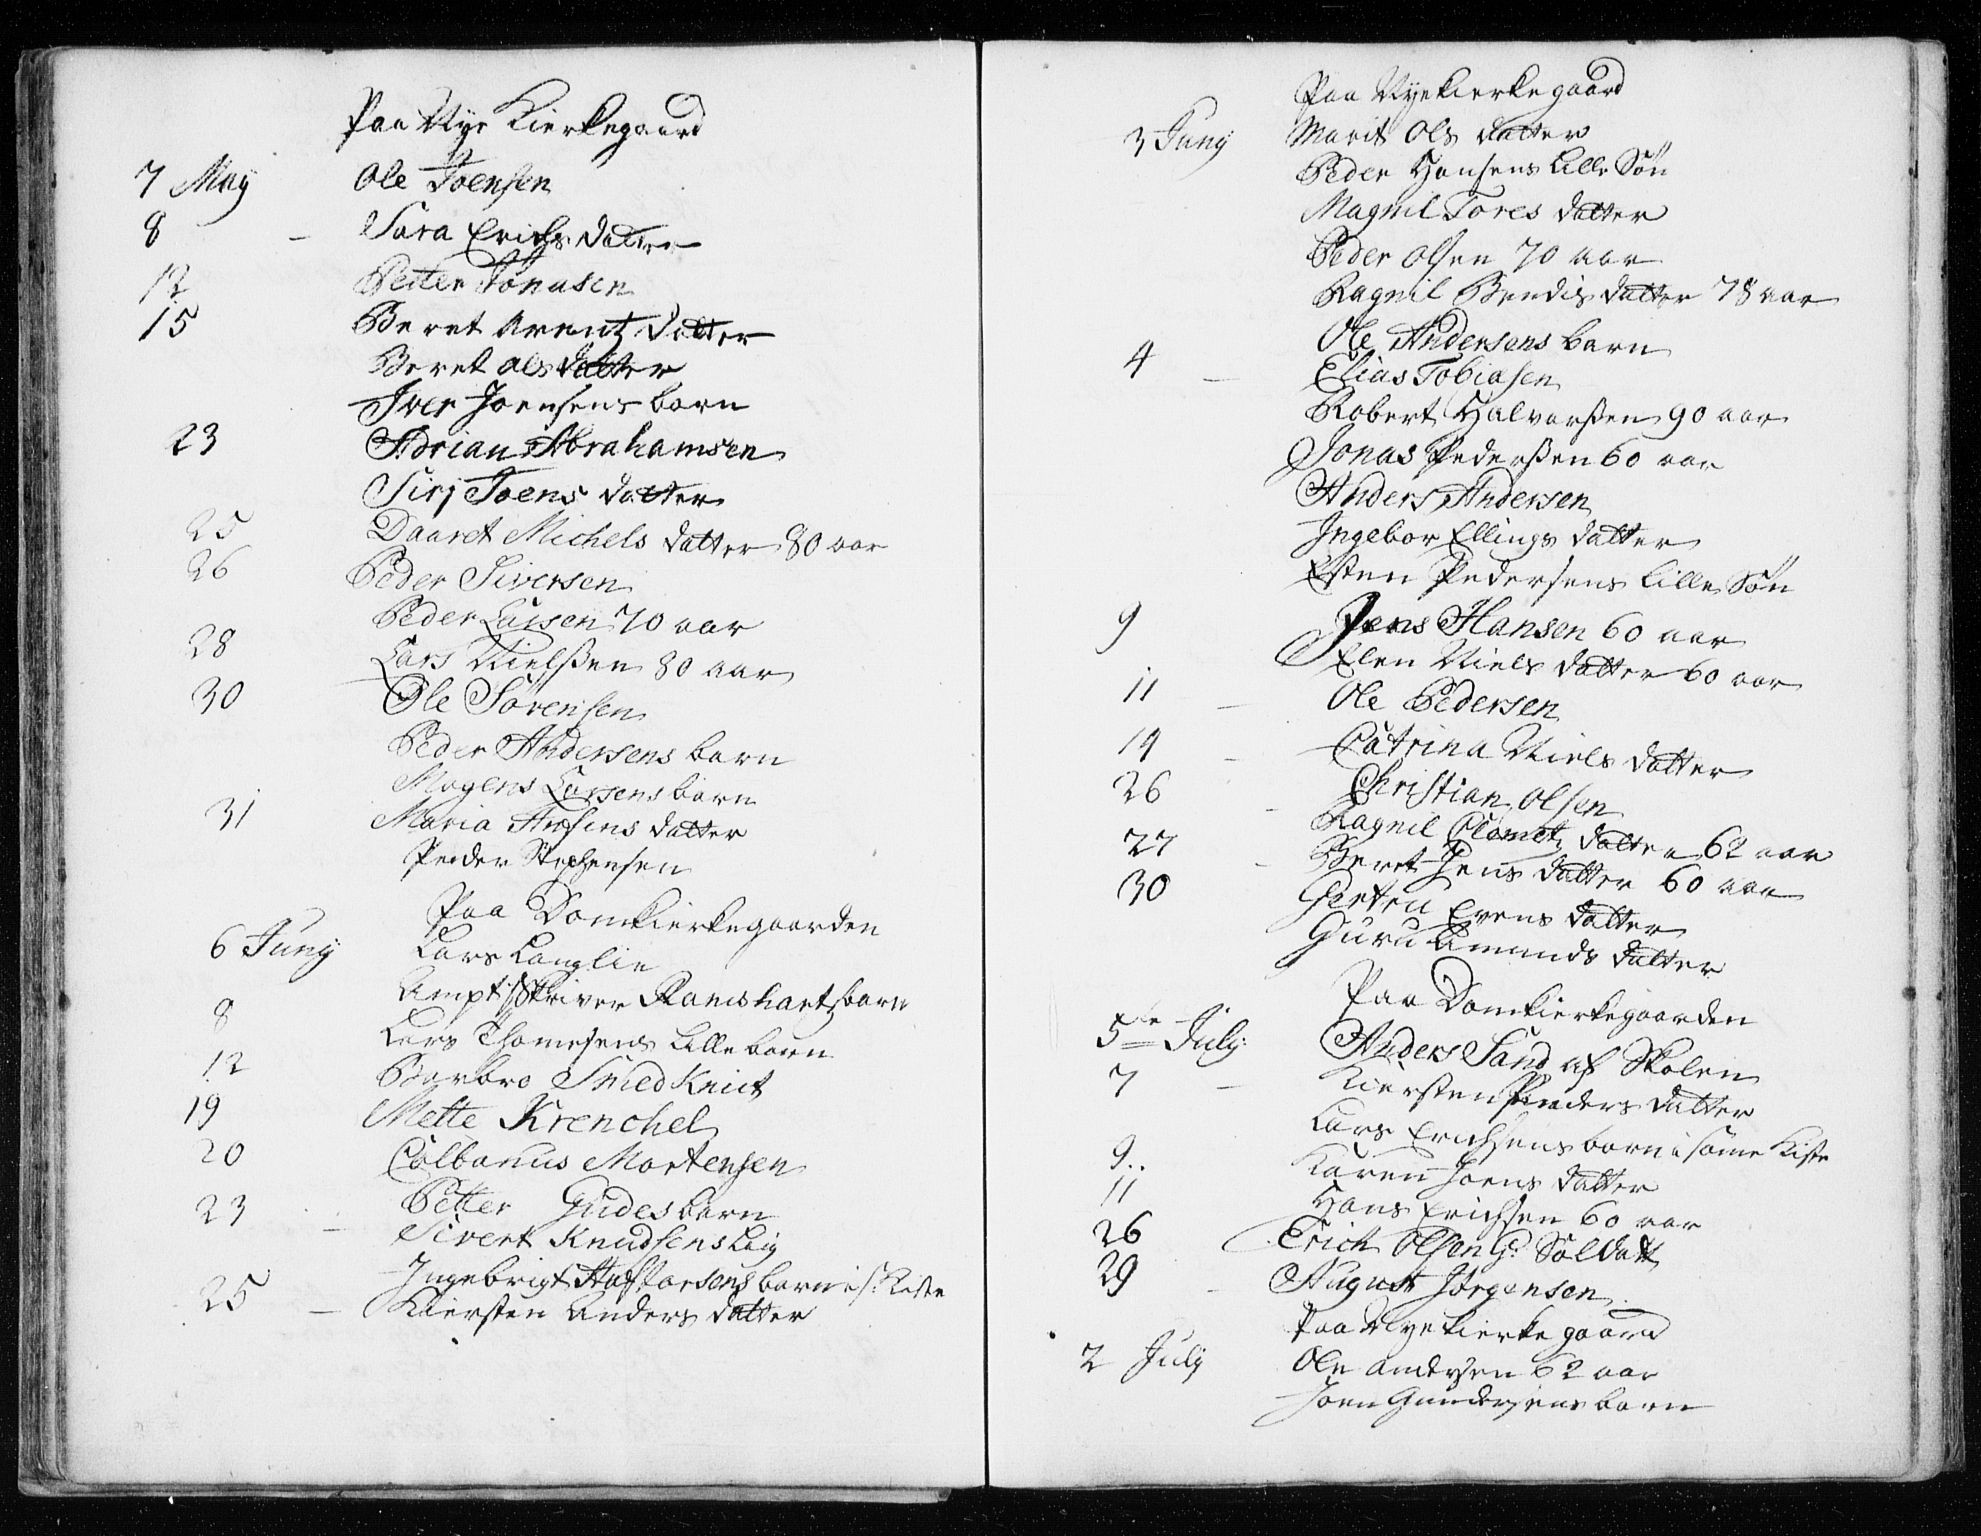 Paa Nye Kierkegaard
7 May Ole Joensen
8 – Sara Erichs datter
12 Petter Jonasen
15 Beret Arentz datter
Beret Ols datter
Iver Joensens barn
23 Adrian Abrahamsen
Sirj Joens datter
25 Daaret Michels datter 80 aar
26 Peder Siversen
Peder Larsen 70 aar
28 Lars Nielsen 80 aar
30 Ole Sørensen
Peder Andersens barn
Mogens Larsens barn
31 Maria datter
Peder Stephensen
Paa Domkierkegaarden
6 Juny Lars Langlie
Ampt Skriver Ramshartz barn
8 Lars Thomesens Lille barn
12 Barbro Smed Kniet
19 Mette Krenchel
20 Colbanus Mortensen
23 Petter Gudes barn
– Sivert Knudsens Lig
Ingebrigt Haftorsens barn i s: Kiste
25 – Kiersten Anders datter
Paa Nye Kierkegaard
3 Juny Marit Ols datter
Peder Hansens Lille Søn
Magnil Tores datter
Peder Olsen 70 aar
Ragnil Bendis datter 78 aar
Ole Andersens barn
4 – Elias Tobiasen
Robert Halvorsen 90 aar
Jonas Pedersen 60 aar
Anders Andersen
Ingebor Ellings datter
Esten Pedersens Lille Søn
9 Jens Hansen 60 aar
Elen Niels datter 60 aar
11 – Ole Pedersen
14 – Catrina Niels datter
26 – Christian Olsen
Ragnil Clometz datter 62 aar
27 – Beret Jens datter 60 aar
30 Evens datter
Guru Amunds datter
Paa Domkierkegaarden
5te July Anders Sand af Skolen
7 – Kiersten Peders datter
Lars Erichsens barn i same Kiste
9.. Karen Joens datter
11 Hans Erichsen 60 aar
26 Erich Olsen G: Soldatt
29 – August Jørgensen
Paa Nye Kierkegaard
2 July Ole Andersen 62 aar
Joen Gundersens barn